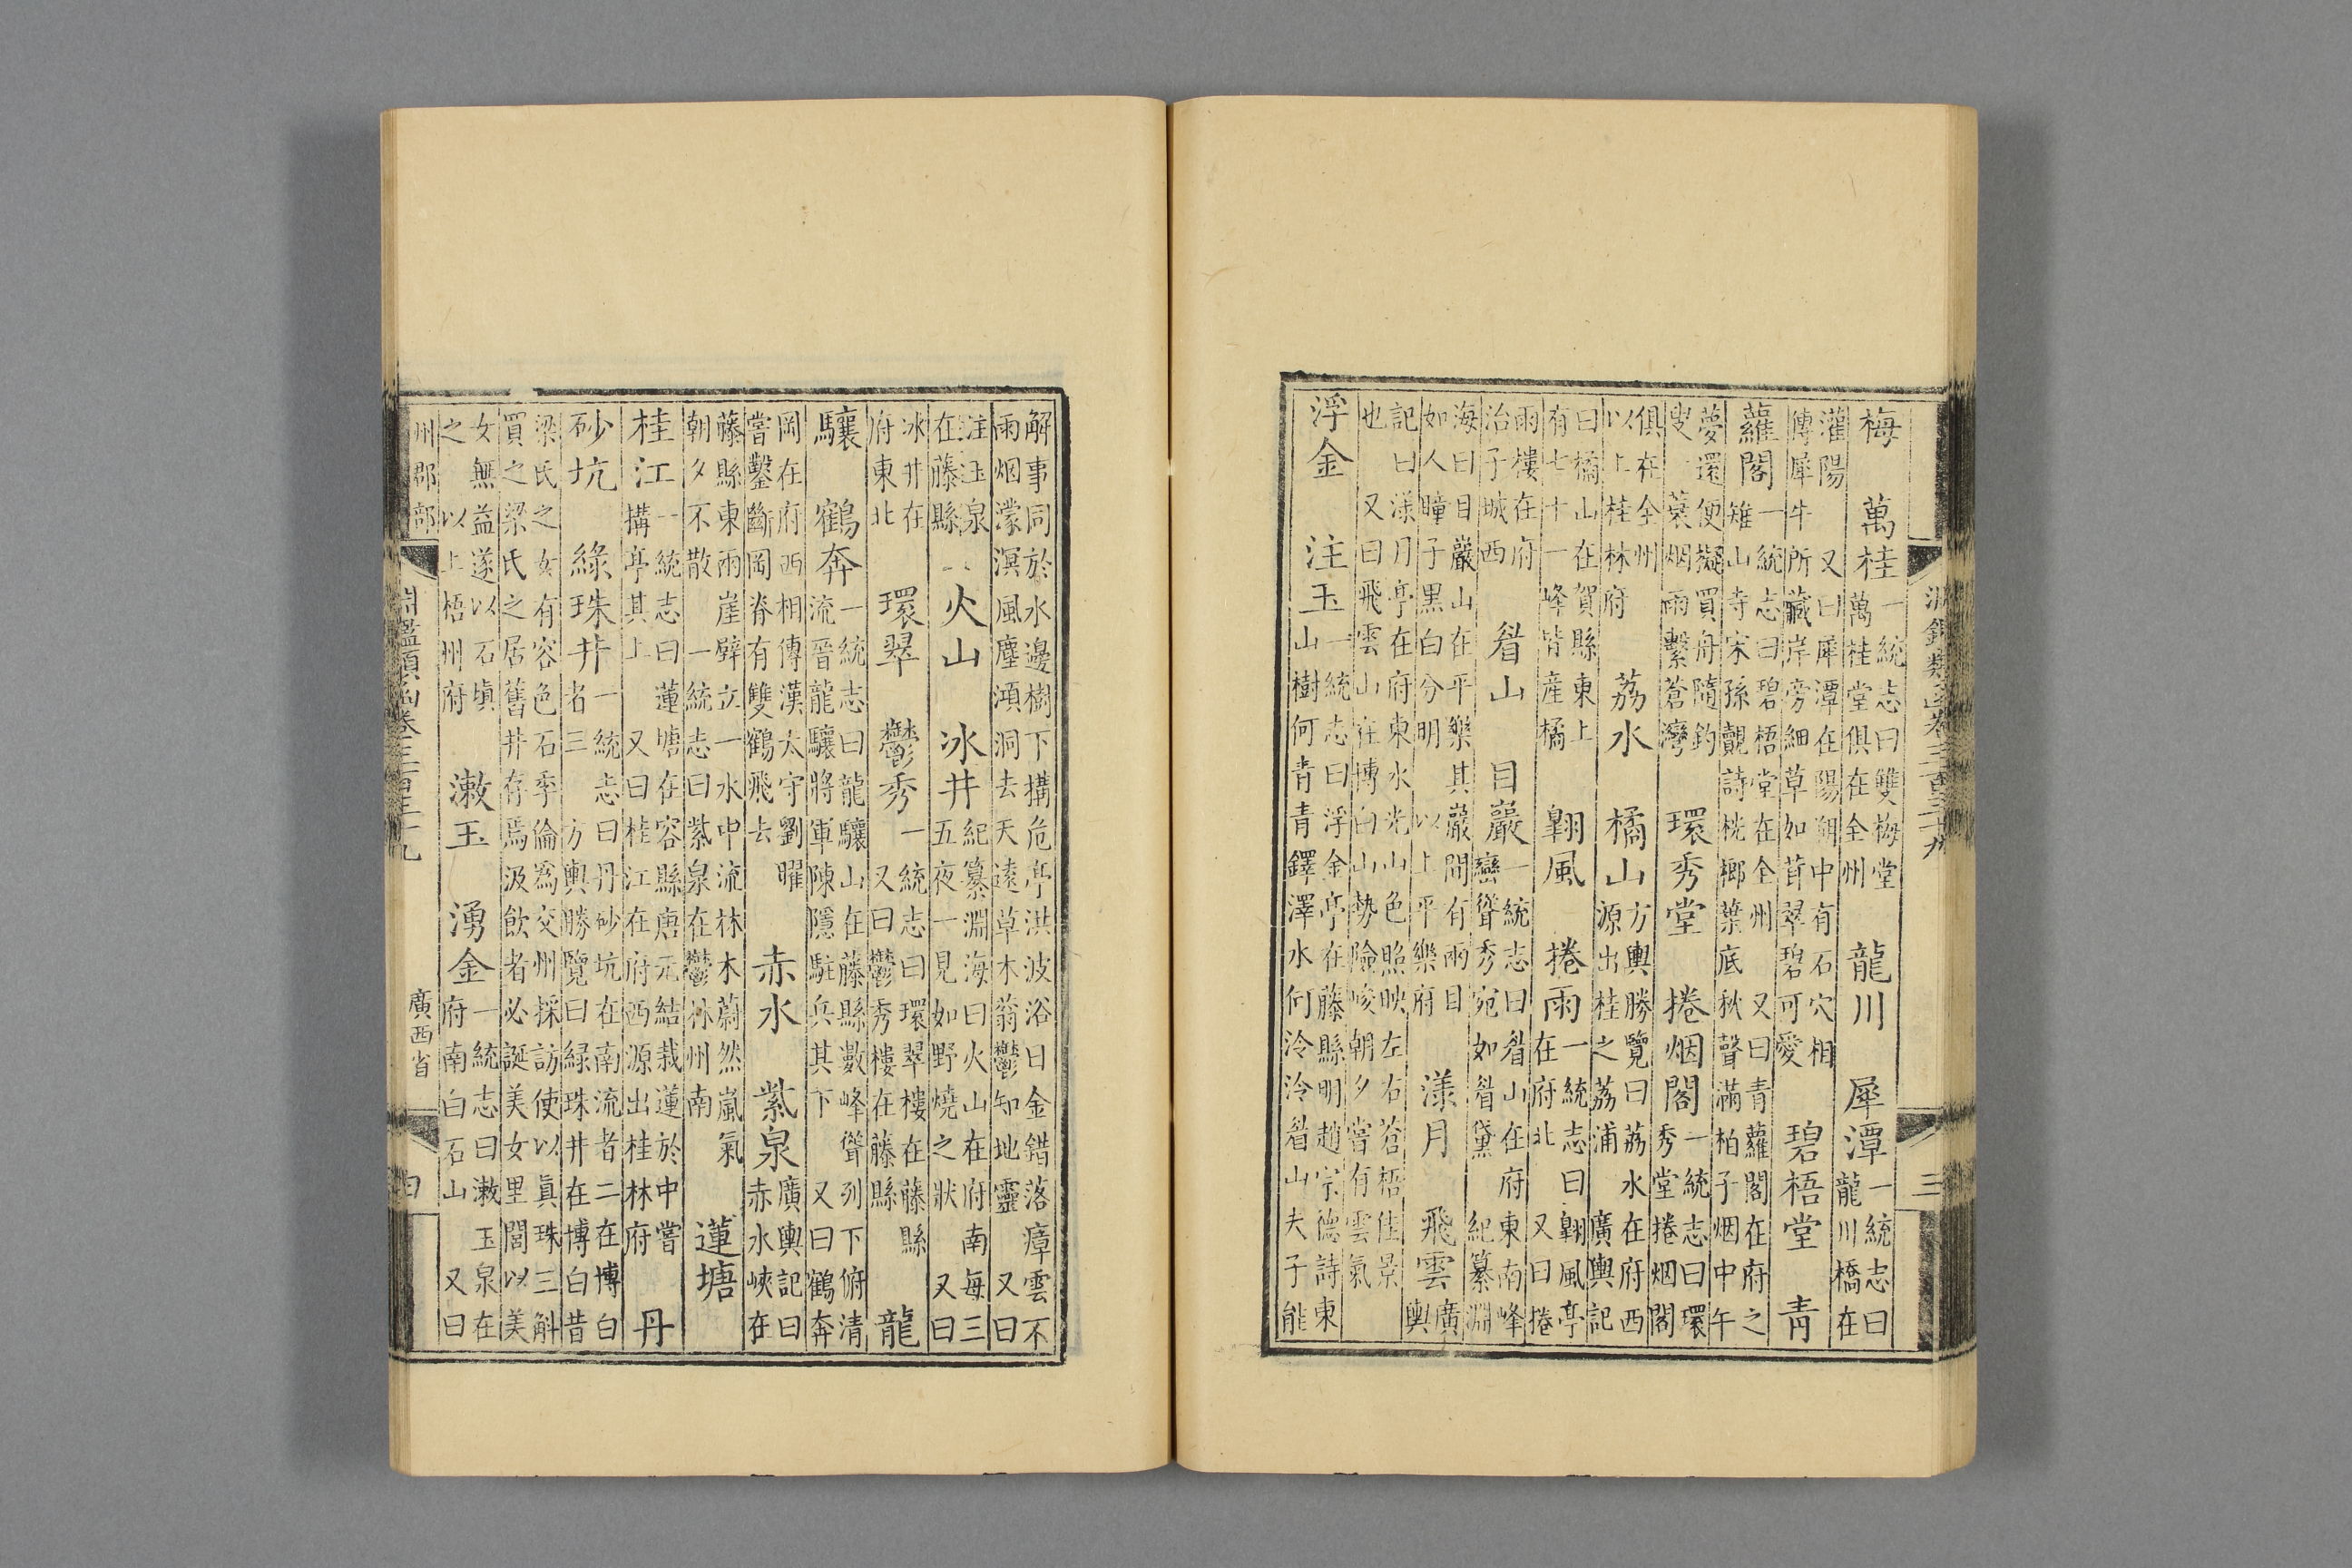 淵鑑類函卷三百三十九 三
梅 萬桂
一統志曰雙梅堂
萬桂堂俱在全州
龍川 犀潭
一統志曰
龍川橋在
灌陽 又曰犀潭在陽朔中有石穴相
傳犀牛所藏岸旁細草如苔翠碧可愛
碧梧堂 青
蘿閣
一統志曰碧梧堂在全州 又曰青蘿閣在府之
雉山寺宋孫覿詩桄榔葉底秋聲滿柏子烟中午
夢還便擬買舟隨釣
叟一蓑烟雨繫蒼灣
環秀堂 捲烟閣
一統志曰環
秀堂捲烟閣
俱在全州
以上桂林府
荔水 橘山
方輿勝覽曰荔水在府西
源出桂之荔浦 廣輿記
曰橘山在賀縣東上
有七十一峰皆產橘
翺風 捲雨
一統志曰翺風亭
在府北 又曰捲
雨樓在府
治子城西
眉山 目巖
一統志曰眉山在府東南峰
巒聳秀宛如眉黛 紀纂淵
海曰目巖山在平樂其巖間有兩目
如人瞳子黑白分明 以上平樂府
漾月 飛雲
廣
輿
記曰漾月亭在府東水光山色照映左右蒼梧佳景
也 又曰飛雲山在博白山勢險峻朝夕嘗有雲氣
浮金 注玉
一統志曰浮金亭在藤縣明趙宗德詩東
山樹何青青鐸澤水何泠泠眉山夫子能
解事同於水邊樹下搆危亭洪波浴日金錯落瘴雲不
雨烟濛溟風塵澒洞去天遠草木蓊鬱知地靈 又曰
注玉泉
在藤縣
火山 冰井
紀纂淵海曰火山在府南每三
五夜一見如野燒之狀 又曰
冰井在
府東北
環翠 鬱秀
一統志曰環翠樓在藤縣
又曰鬱秀樓在藤縣
龍
驤 鶴奔
一統志曰龍驤山在藤縣數峰聳列下俯清
流晉龍驤將軍陳隱駐兵其下 又曰鶴奔
岡在府西相傳漢太守劉曜
嘗鑿斷岡脊有雙鶴飛去
赤水 紫泉
廣輿記曰
赤水峽在
藤縣東兩崖壁立一水中流林木蔚然嵐氣
朝夕不散 一統志曰紫泉在鬱林州南
蓮塘
桂江
一統志曰蓮塘在容縣唐元結栽蓮於中嘗
搆亭其上 又曰桂江在府西源出桂林府
丹
砂坑 綠珠井
一統志曰丹砂坑在南流者二在博白
者三 方輿勝覽曰綠珠井在博白昔
梁氏之女有容色石季倫為交州採訪使以真珠三斛
買之梁氏之居舊井存焉汲飲者必誕美女里閭以美
女無益遂以石塡
之 以上梧州府
漱玉 湧金
一統志曰漱玉泉在
府南白石山 又曰
州郡部 淵鑑類函卷三百三十九 廣西省 四